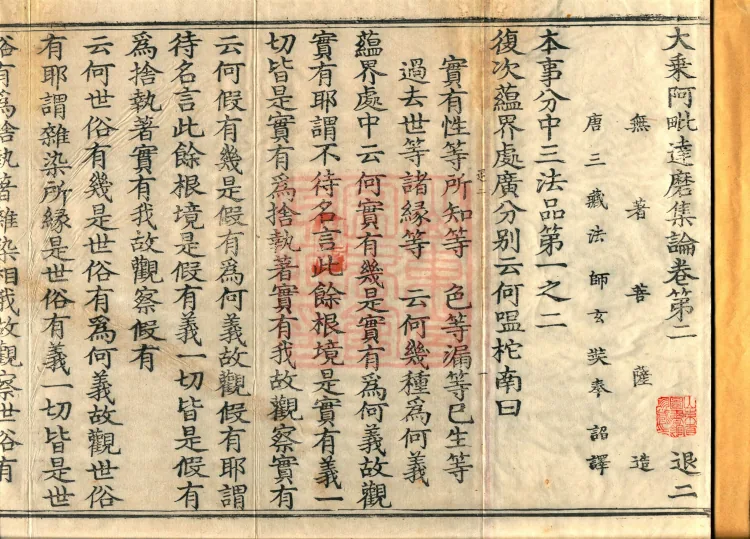 大乘阿毗達磨集論卷第二 退二
無著菩薩造
唐三藏法師玄奘奉詔譯
本事分中三法品第一之二
復次蘊界處廣分别云何嗢柁南曰
實有性等所知等 色等漏等已生等
過去世等諸緣等 云何幾種爲何義
蘊界處中云何實有幾是實有爲何義故觀
實有耶謂不待名言此餘根境是實有義一
切皆是實有爲捨執著實有我故觀察實有
云何假有幾是假有爲何義故觀假有耶謂
待名言此餘根境是假有義一切皆是假有
爲捨執著實有我故觀察假有
云何世俗有幾是世俗有爲何義故觀世俗
有耶謂雜染所緣是世俗有義一切皆是世
俗有爲捨執著雜染相我故觀察世俗有